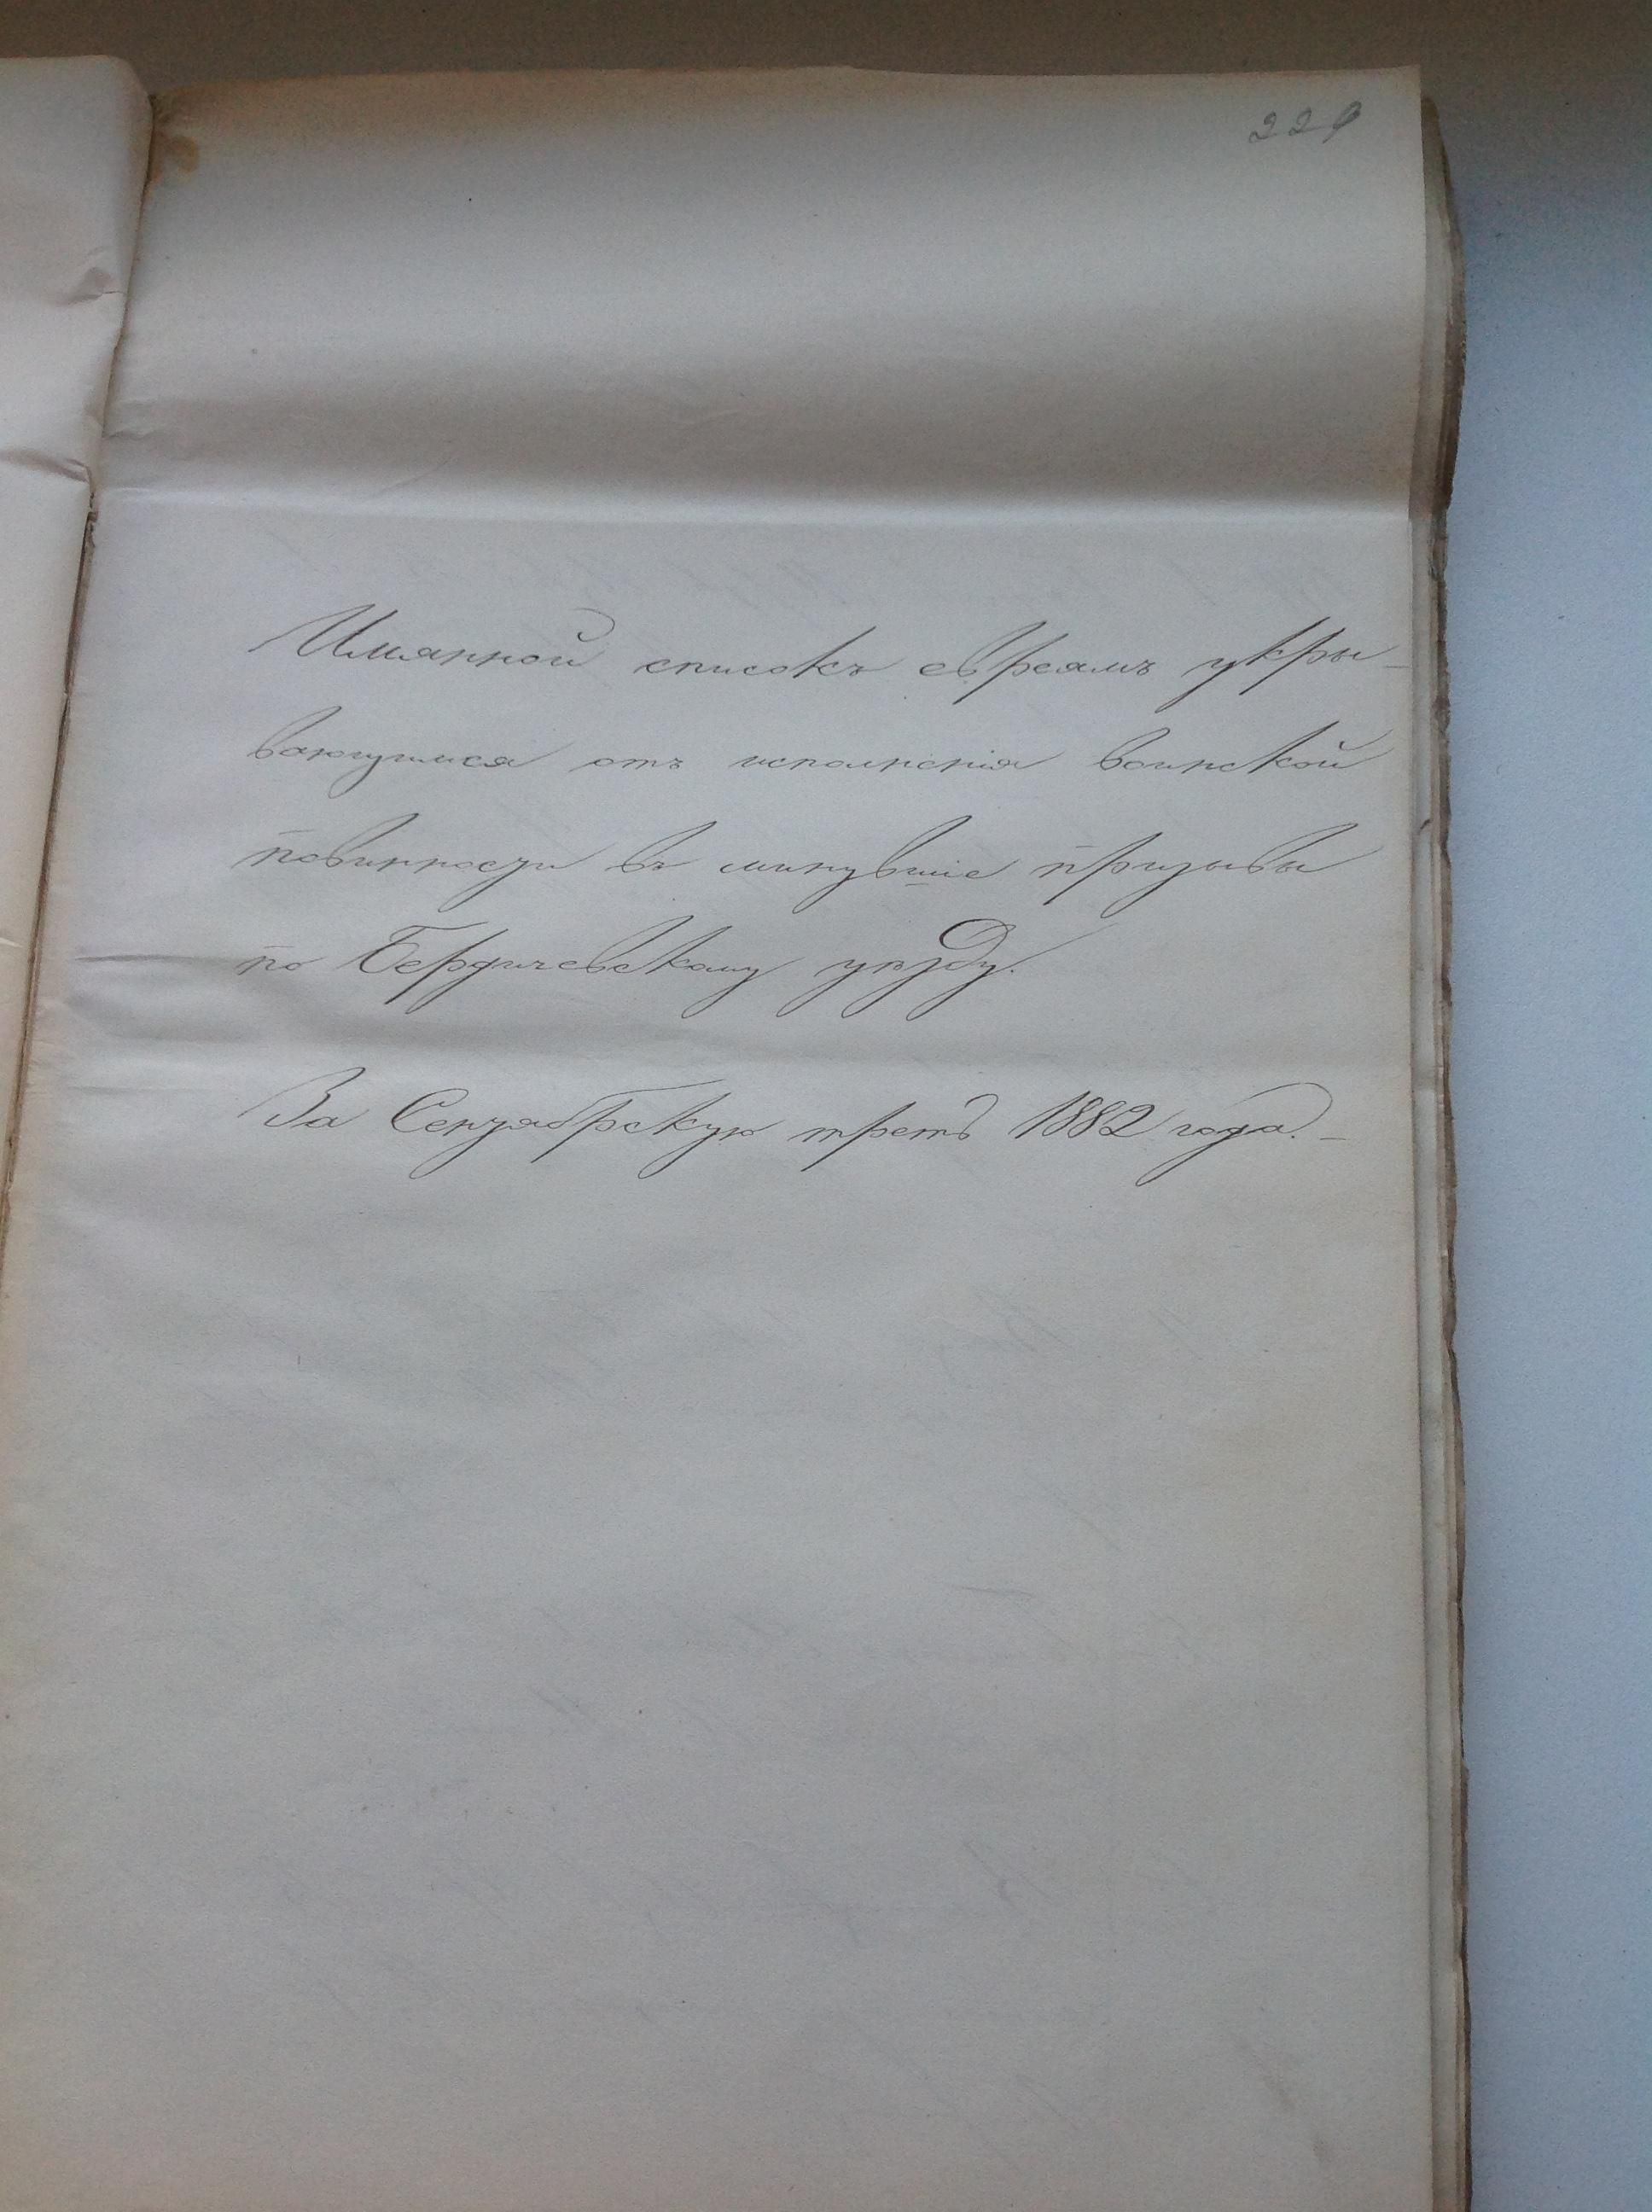 229
Имянной списокъ евреямъ укры-
вающимся отъ исполненія воинской
повинности въ минувшіе призывы
по Бердичевскому уѣзду.
За Сентябрскую треть 1882 года.-